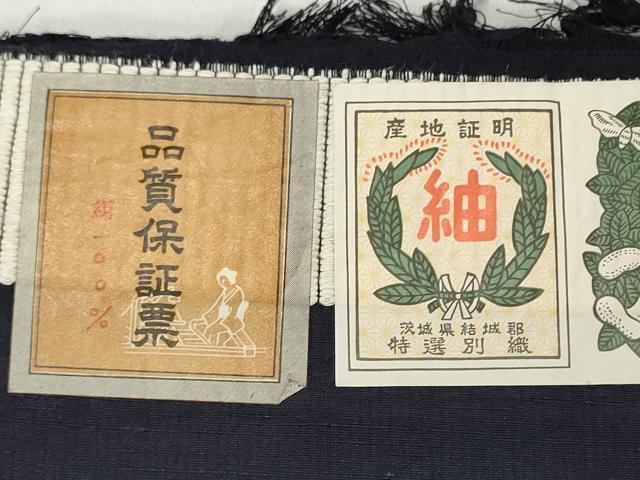 品質保証票
絹一〇〇%
産地証明
紬
茨城県結城郡
特選別織